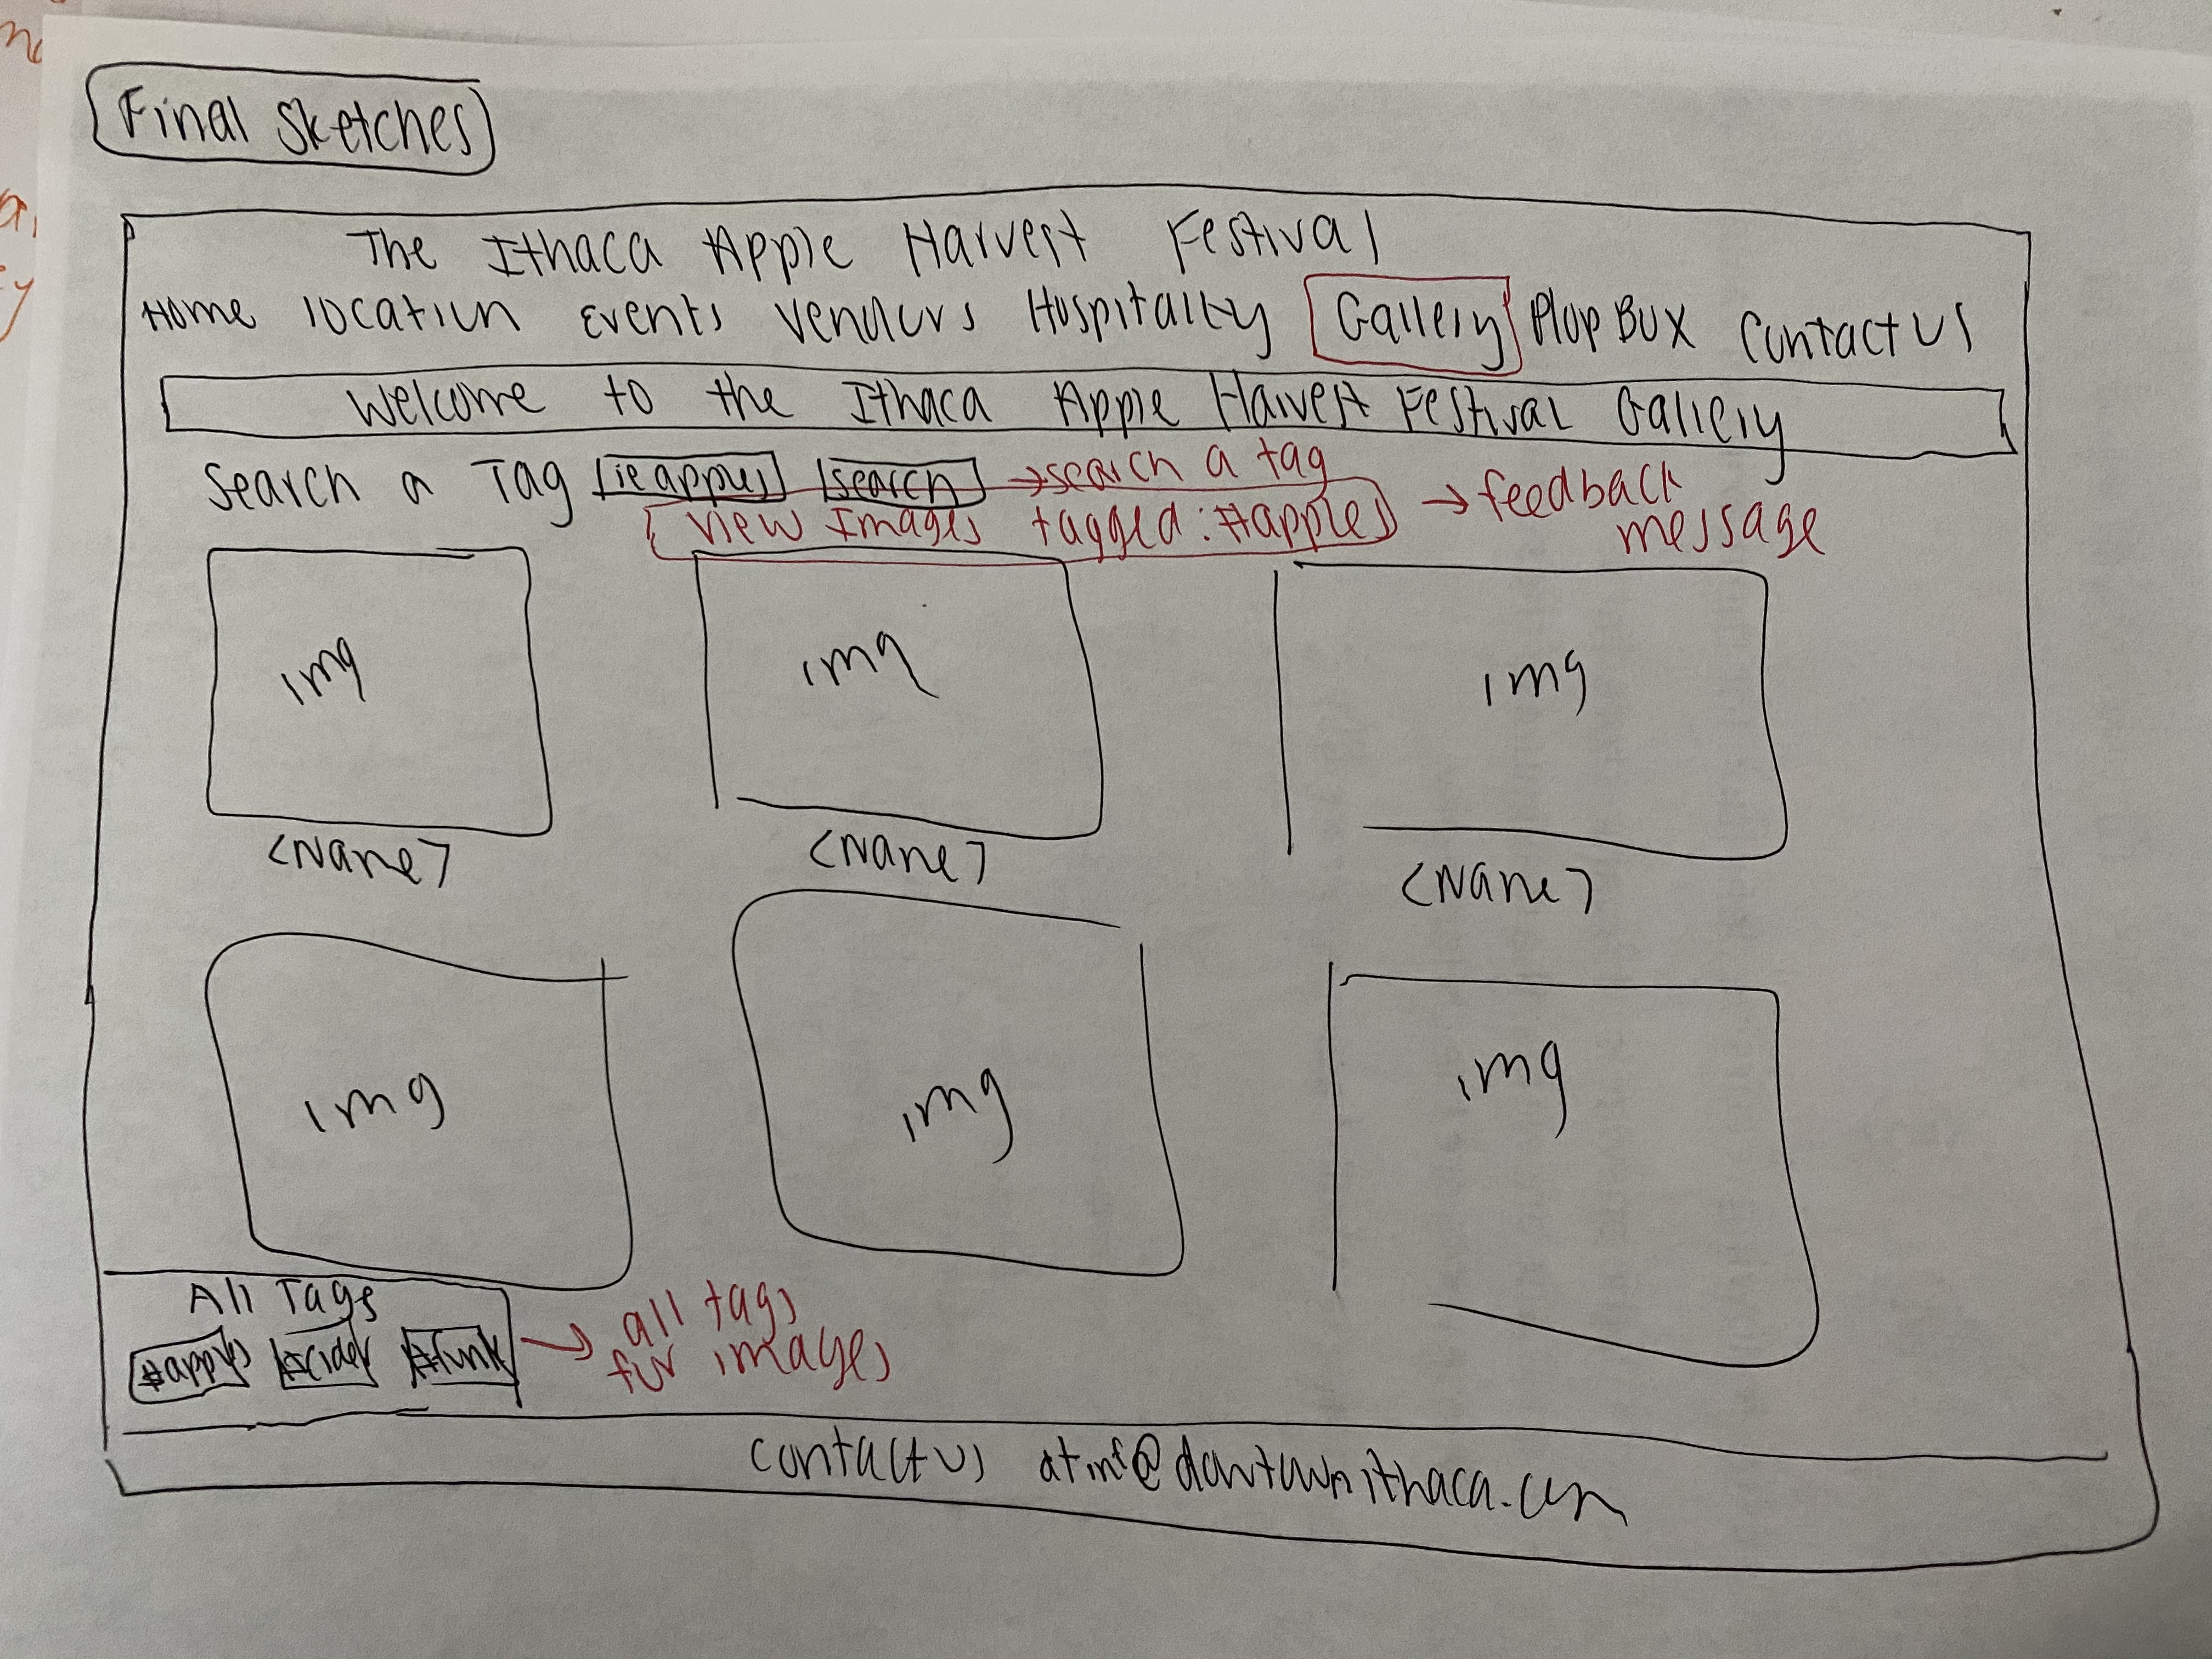 Final Sketches
The Ithaca Apple Harvest Festival
Home location Events Vendors Hospitality Gallery Plop Box Contact Us
Welcome to the Ithaca Apple Harvest Festival Gallery
Search a Tag ie apples search → search a tag
View Images tagged: #apples → feedback message
img img img
<Name> <Name> <Name>
img img img
All Tags
#apples #cider → all tags for images
contact us at @downtownithaca.com